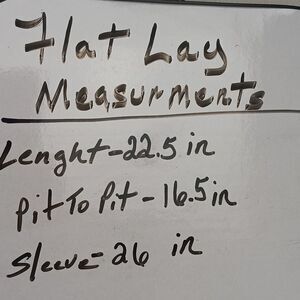 Flat Lay
Measurments
Lenght-22.5 in
Pit To Pit - 16.5 in
Sleeve- 26 in